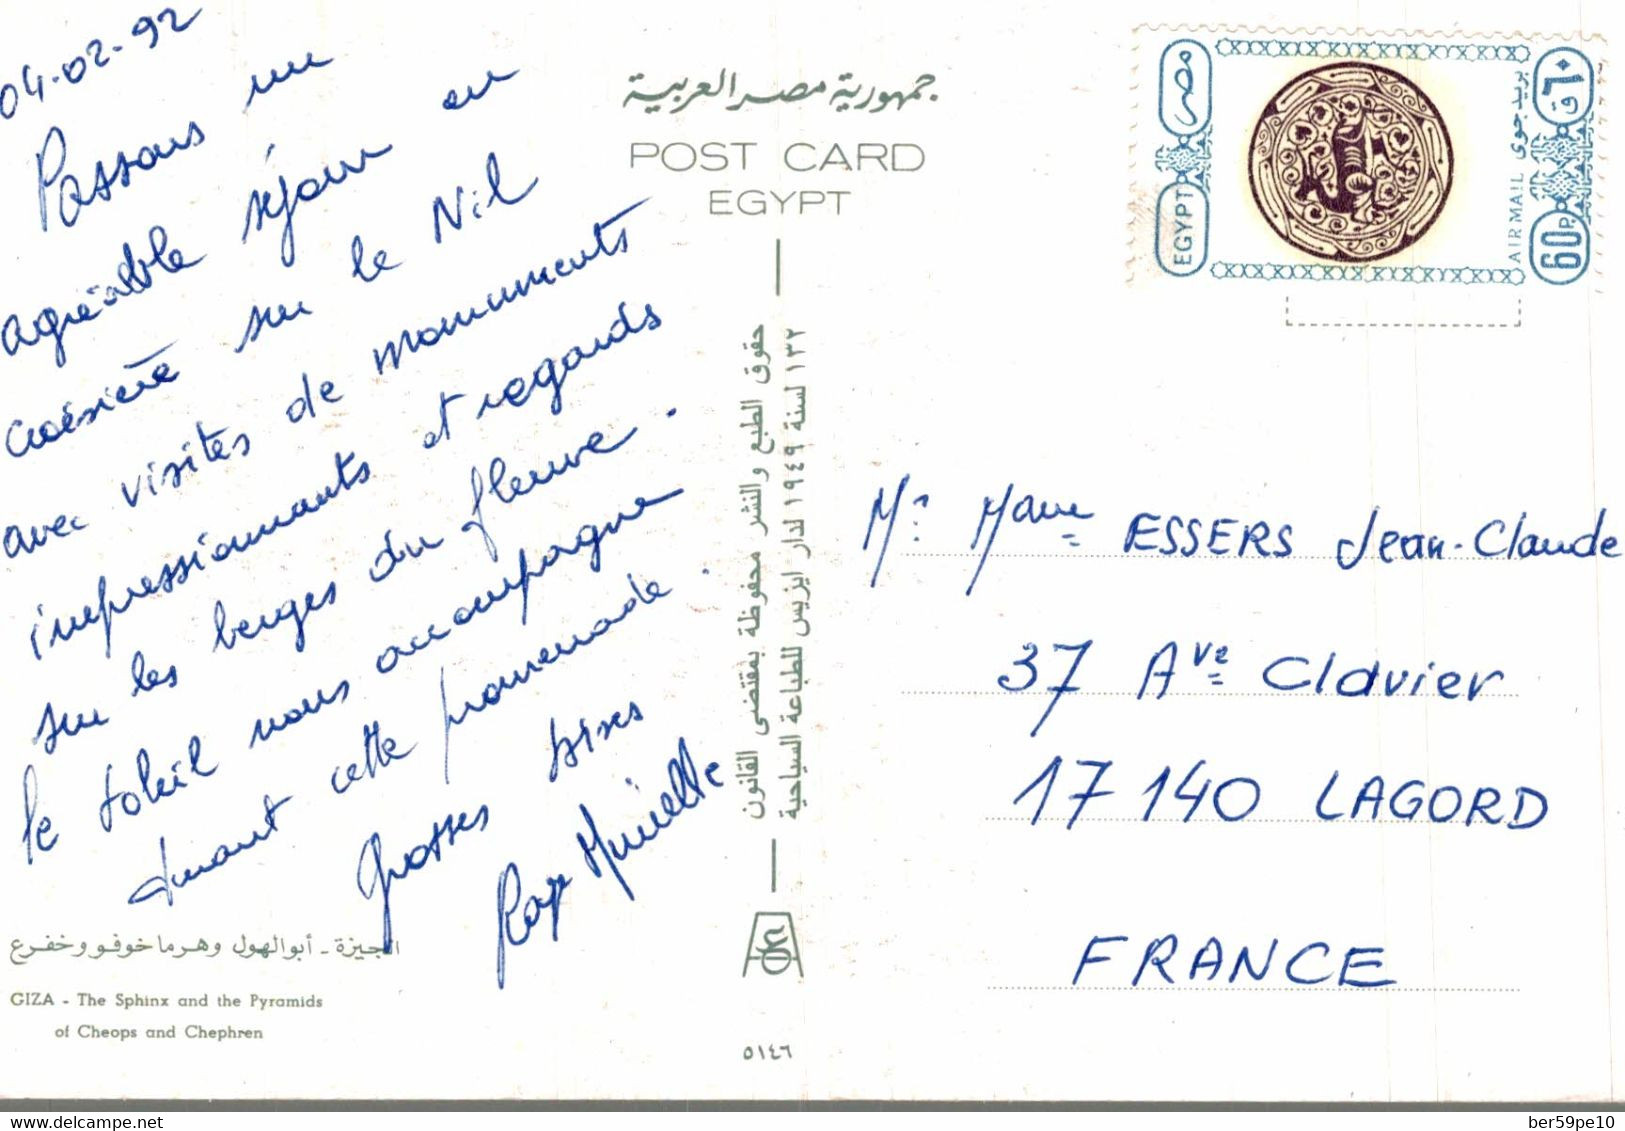 04-02-92
Passons un
agréable séjour en
croisière sur le Nil
avec visites de monuments
impressionnants et regards
sur les berges du fleuve.
le soleil nous accompagne
durant cette promenade.
Grosses bises
Murielle
الجيزة - أبوالهول وهرما خوفو وخفرع
GIZA - The Sphinx and the Pyramids
of Cheops and Chephren
جمهورية مصر العربية
POST CARD
EGYPT
حقوق الطبع والنشر محفوظة بمقتضى القانون
١٣٢ لسنة ١٩٤٩ لدار ايزيس للطباعة السياحية
٥١٤٦
مصر
EGYPT
بريد جوى
AIR MAIL
٦٠ ق
60 P.
Mr Mme ESSERS Jean-Claude
37 Ave Clavier
17140 LAGORD
FRANCE
Delcampe.net
ber59pe10